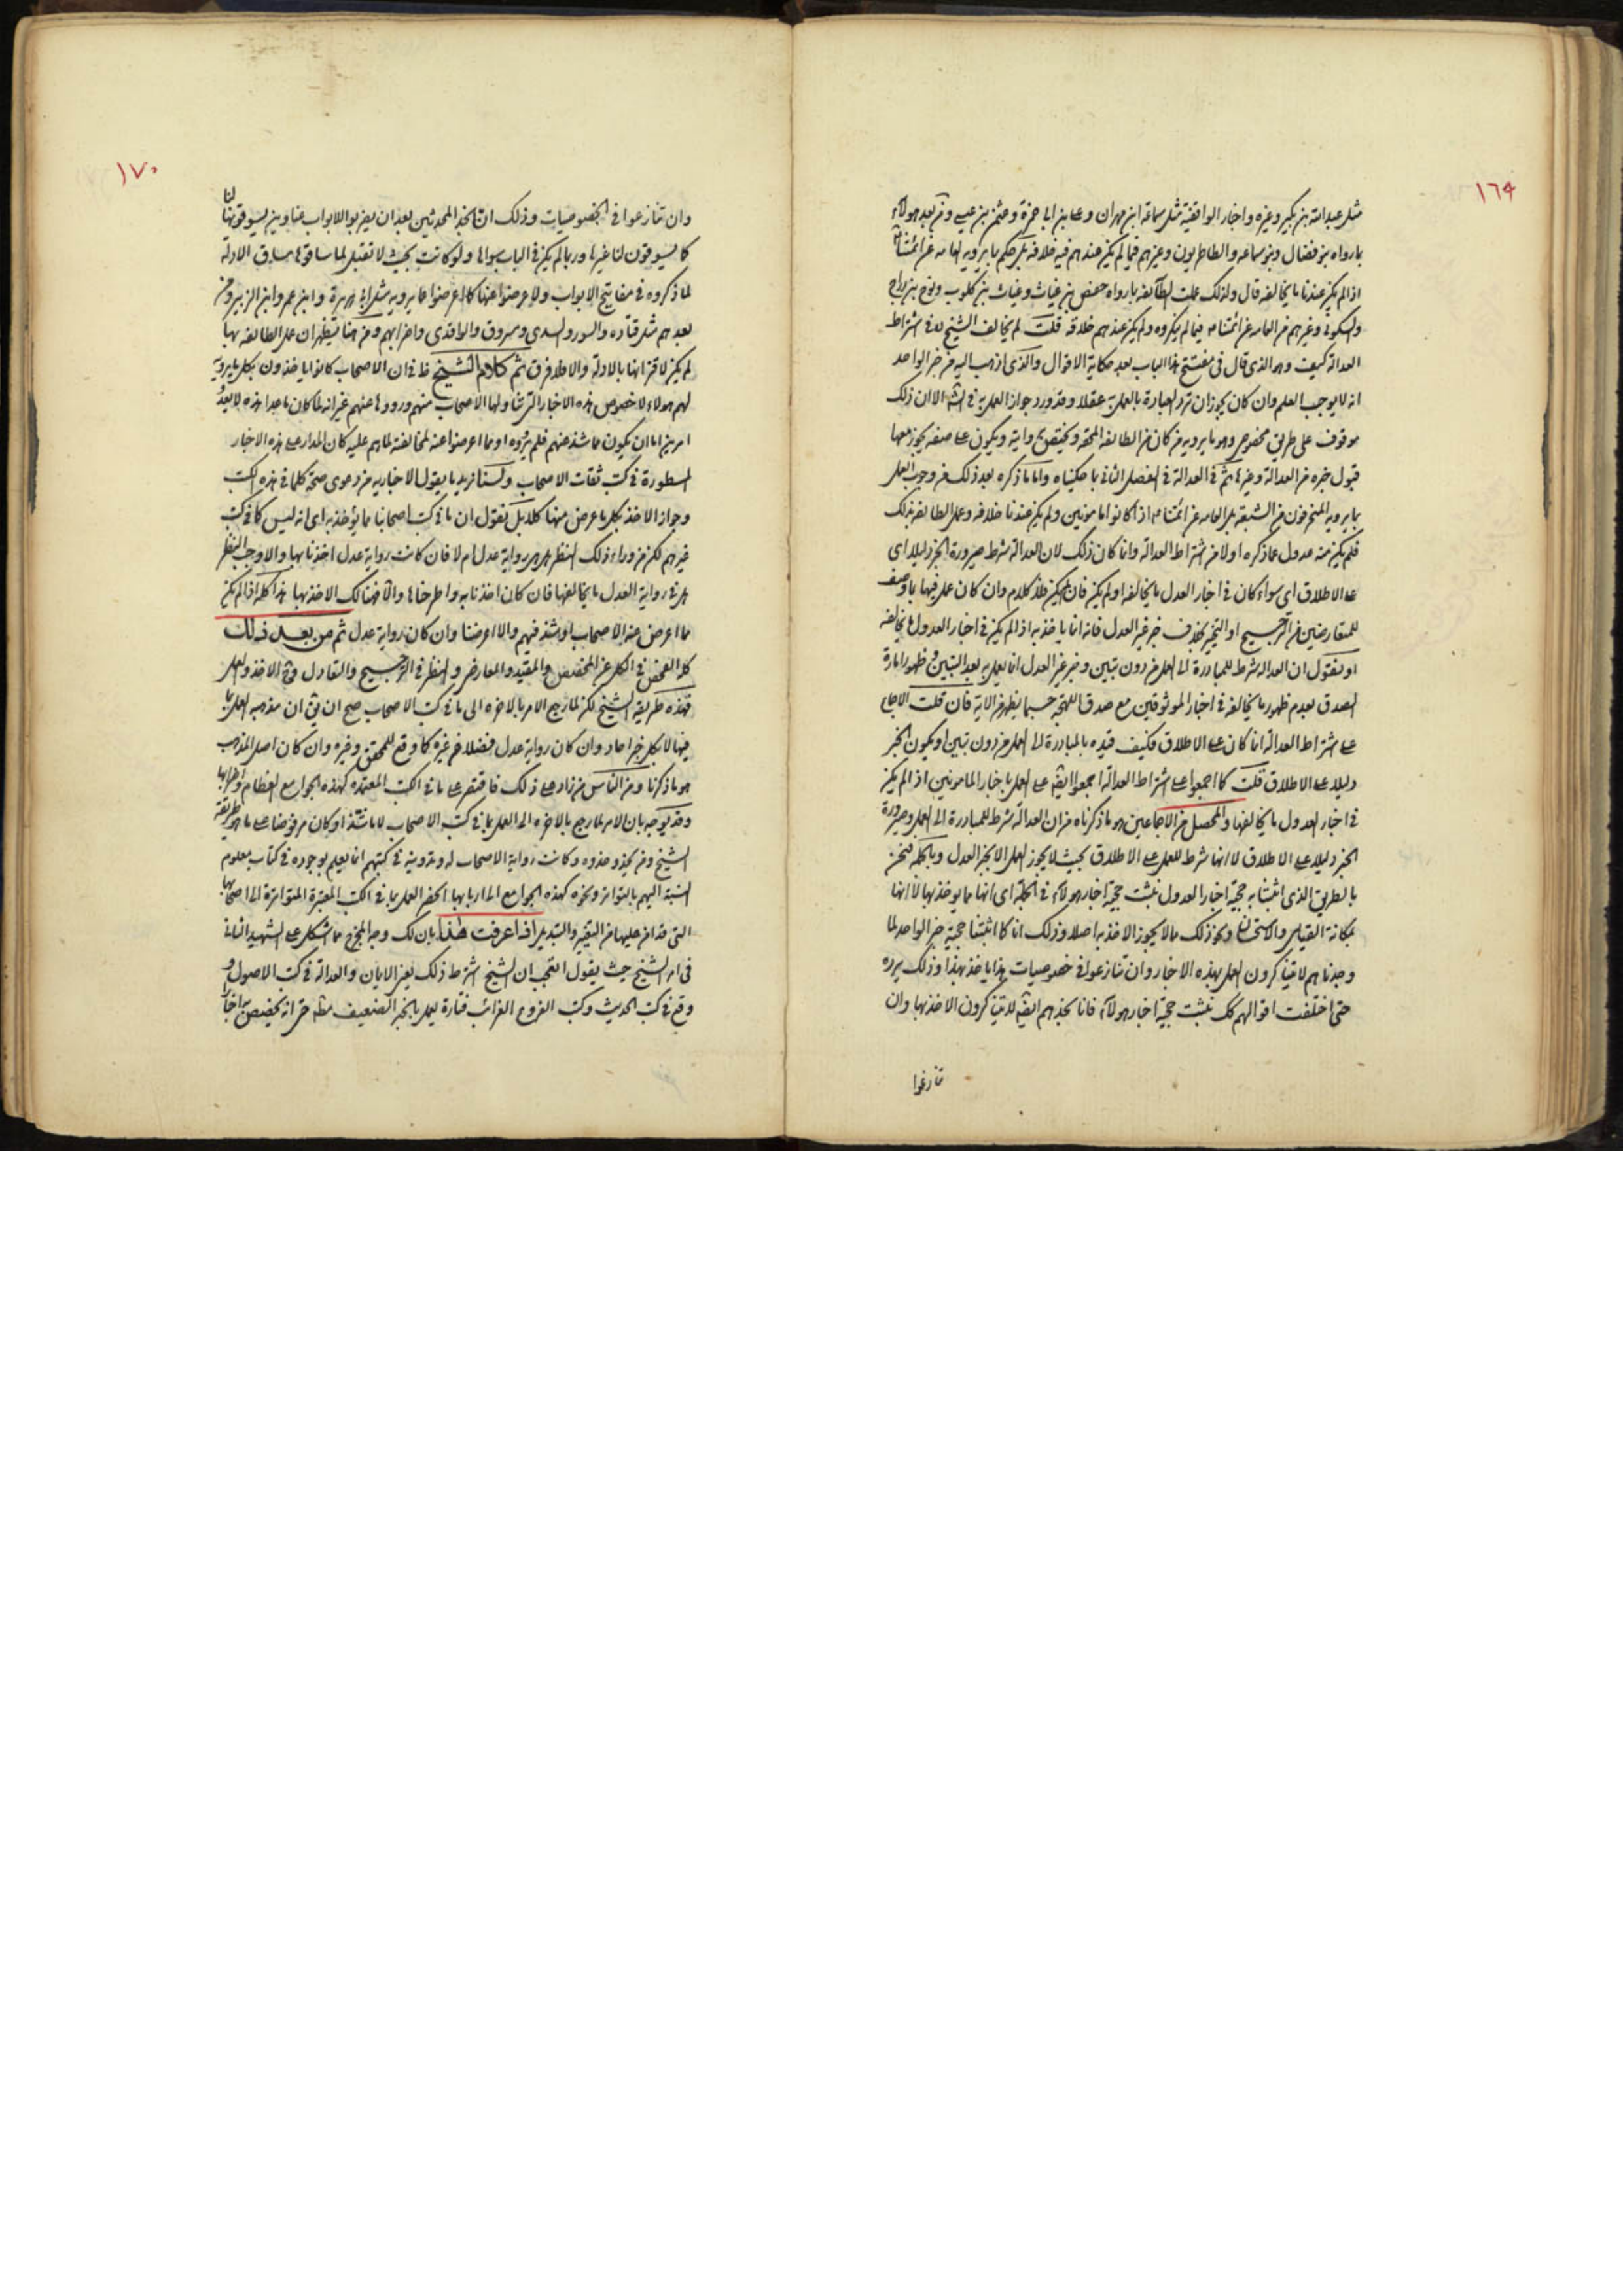 ١٦٩
مثل عبدالله بن بكير وغيره واخبار الواقفية مثل سماعة ابن مهران وعلى بن ابى حمزة وعثمن بن عيسى ومن بعد هولاء
بما رواه بنو فضال وبنو سماعه والطاطريون وغيرهم فيما لم يكن عندهم فيه خلافه بل حكم ما يرويه العامه عن ائمتنا
اذا لم يكن عندنا ما يخالفه قال ولذلك عملت الطائفه بما رواه حفص بن غياث وغياث بن كلوب ونوح بن دراج
والسكونى وغيرهم من العامه عن ائمتنا فيما لم ينكروه ولم يكن عندهم خلافه قلت لم يخالف الشيخ فى اشتراط
العدالة كيف وهو الذى قال فى مفتتح هذا الباب بعد حكاية الاقوال والذى اذهب اليه من خبر الواحد
انه لا يوجب العلم وان كان يجوز ان ترد العبادة بالعمل به عقلا وقد ورد جواز العمل به فى الشرع الا ان ذلك
موقوف على طريق مخصوص وهو ما يرويه من كان من الطائفه المحقه ويختص بروايته ويكون على صفه يجوز معها
قبول خبره من العدالة وغيرها ثم فى العدالة فى الفصل الثانى ما حكيناه واما ما ذكره بعد ذلك من وجوب العمل
بما يرويه المنحرفون من الشيعة بل العامه عن ائمتنا اذا كانوا مامونين ولم يكن عندنا خلافه وعمل الطائفه بذلك
فلم يكن منه عدول عما ذكره اولا من اشتراط العدالة وانما كان ذلك لان العدالة شرط صيرورة الخبر دليلا اى
على الاطلاق اى سواء كان فى اخبار العدل ما يخالفه او لم يكن فان لم يكن فلا كلام وان كان عمل فيها بما وصف
للمتعارضين من الترجيح او التخيير بخلاف خبر غير العدل فانه انما ياخذ به اذا لم يكن فى اخبار العدول ما يخالفه
او نقول ان العدالة شرط للمبادرة الى العمل من دون تبين وخبر غير العدل انما يعمل به بعد التبين وظهور امارة
الصدق بعدم ظهور ما يخالفه فى اخبار الموثوقين مع صدق اللهجة حسبما يظهر من الاية فان قلت الاجماع
على اشتراط العدالة انما كان على الاطلاق فكيف قيده بالمبادرة الى العمل من دون تبين او بكون الخبر
دليلا على الاطلاق قلت كما اجمعوا على اشتراط العدالة اجمعوا ايضا على العمل باخبار المامونين اذا لم يكن
فى اخبار العدول ما يخالفها والمحصل من الاجماعين هو ما ذكرناه من ان العدالة شرط للمبادرة الى العمل وصيرورة
الخبر دليلا على الاطلاق لا انها شرط للعمل على الاطلاق بحيث لا يجوز العمل الا بخبر العدل وبالجملة فنحن
بالطريق الذى اثبتنا به حجية اخبار العدول نثبت حجية اخبار هولاء فى الجملة اى انها مما يوخذ بها لا انها
بمكانة القياس والاستحسان ونحو ذلك مما لا يجوز الاخذ به اصلا وذلك انا كما اثبتنا حجية خبر الواحد لما
وجدناهم لا يتناكرون العمل بهذه الاخبار وان تنازعوا فى خصوصيات هذا ياخذ بهذا وذلك يرده
حتى اختلفت اقوالهم كك نثبت حجية اخبار هولاء فانا نجدهم ايضا لا يتناكرون الاخذ بها وان
تنازعوا
١٧٠
وان تنازعوا فى الخصوصيات وذلك انا نجد المحدثين بعد ان يضربوا للابواب عناوين يسوقونها لنا
كما يسوقون لنا غيرها وربما لم يكن فى الباب سواها ولو كانت بحيث لا تقبل لما ساقوها مساق الادلة
لما ذكروه فى مفاتيح الابواب ولاعرضوا عنها كما اعرضوا عما يرويه مثل ابى هريرة وابن عمر وابن الزبير ومن
بعدهم مثل قتاده والسدى ومسروق والواقدى واضرابهم ومن هنا يظهر ان عمل الطائفه بها
لم يكن لاقترانها بالادلة والا فلا فرق ثم كلام الشيخ ظ فى ان الاصحاب كانوا ياخذون بكل ما يرويه
لهم هولاء لا خصوص هذه الاخبار التى تناولها الاصحاب منهم ورووها عنهم غير انه لما كان ما عدا هذه لا يعدو
امرين اما ان يكون مما شذ عنهم فلم يرووه او مما اعرضوا عنه لمخالفته لما هم عليه كان المدار على هذه الاخبار
المسطورة فى كتب ثقات الاصحاب ولسنا نريد ما يقول الاخباريه من دعوى صحة كلما فى هذه الكتب
وجواز الاخذ بكل ما عرض منها كلا بل نقول ان ما فى كتب اصحابنا مما يؤخذ به اى انه ليس كما فى كتب
غيرهم لكن من وراء ذلك النظر هل هى رواية عدل ام لا فان كانت رواية عدل اخذنا بها والا وجب النظر
هل فى رواية العدل ما يخالفها فان كان اخذنا به واطرحناها والا فهنالك الاخذ بها هذا كله اذا لم يكن
مما اعرض عنه الاصحاب او شذ فيهم والا اعرضنا وان كان رواية عدل ثم من بعد ذلك
كله الفحص فى الكل عن المخصص والمقيد والمعارض والنظر فى الترجيح والتعادل وفى الاخذ والعمل
فهذه طريقه الشيخ لكن لما رجع الامر بالاخره الى ما فى كتب الاصحاب صح ان يق ان مذهبه العمل بما
فيها لا بكل خبر احاد وان كان رواية عدل فضلا عن غيره كما وقع للمحقق وغيره وان كان اصل المذهب
هو ما ذكرنا ومن الناس من زاد على ذلك فاقتصر على ما فى الكتب المعتمده كهذه الجوامع العظام واضرابها
وقد يوجه بان الامر لما رجع بالاخره الى العمل بما فى كتب الاصحاب لا ما شذ او كان مرفوضا على ما هو طريقة
الشيخ ومن يحذو حذوه وكانت رواية الاصحاب له وتدوينه فى كتبهم انما يعلم بوجوده فى كتاب معلوم
النسبة اليهم بالتواتر ونحوه كهذه الجوامع الى اربابها انحصر العمل بما فى الكتب المعتبرة المتواترة الى اصحابها
التى قد امن عليها من التغيير والتبديل اذا عرفت هذا بان لك وجه المخرج مما اشكل على الشهيد الثانى
فى امر الشيخ حيث يقول العجب ان الشيخ اشترط ذلك يعنى الايمان والعدالة فى كتب الاصول و
وقع فى كتب الحديث وكتب الفروع الغرائب فتارة يعمل بالخبر الضعيف مطه حتى انه يخصص به اخبارا